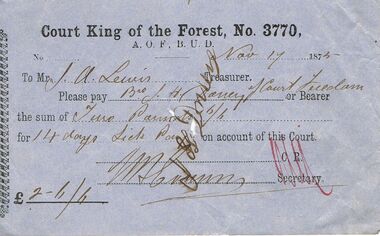 Court King of the Forest, No. 3770,
A.O.F., B.U.D.
No Nov 17 187
To Mr. J. A. Lewis Treasurer.
Please pay Bro J. H. Court or Bearer
the sum of Two Pounds 6/6
for 14 days Sick Pay on account of this Court.
C.R.
Secretary.
£ 2-6/6